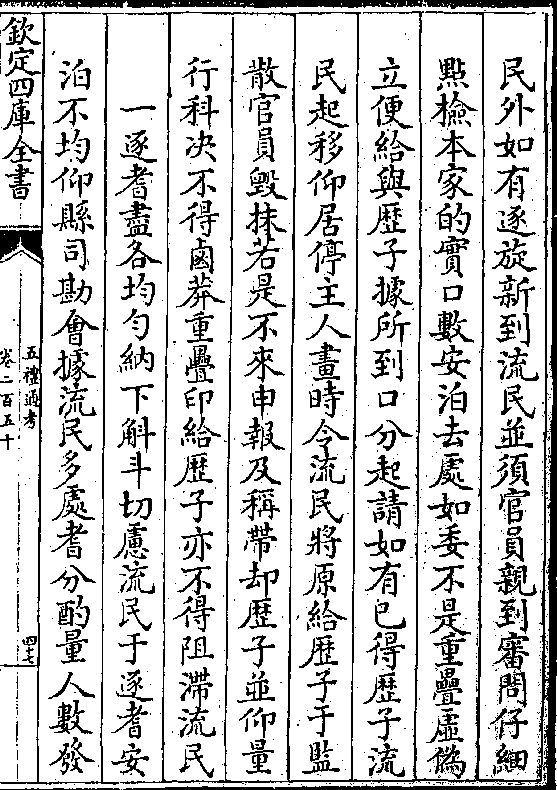 民外如有逐旋新到流民並須官員親到審問仔細
點檢本家的實口數安泊去處如委不是重疊虛偽
立便給與歷子據所到口分起請如有已得歷子流
民起移仰居停主人畫時令流民將原給歷子于監
散官員毀抹若是不來申報及稱帶却歷子並仰量
行科决不得鹵莽重疊印給歷子亦不得阻滯流民
一逐耆盡各均勻納下斛斗切慮流民于逐耆安
泊不均仰縣司勘會據流民多處耆分酌量人數發
欽定四庫全書
五禮通考
卷二百五十
四七